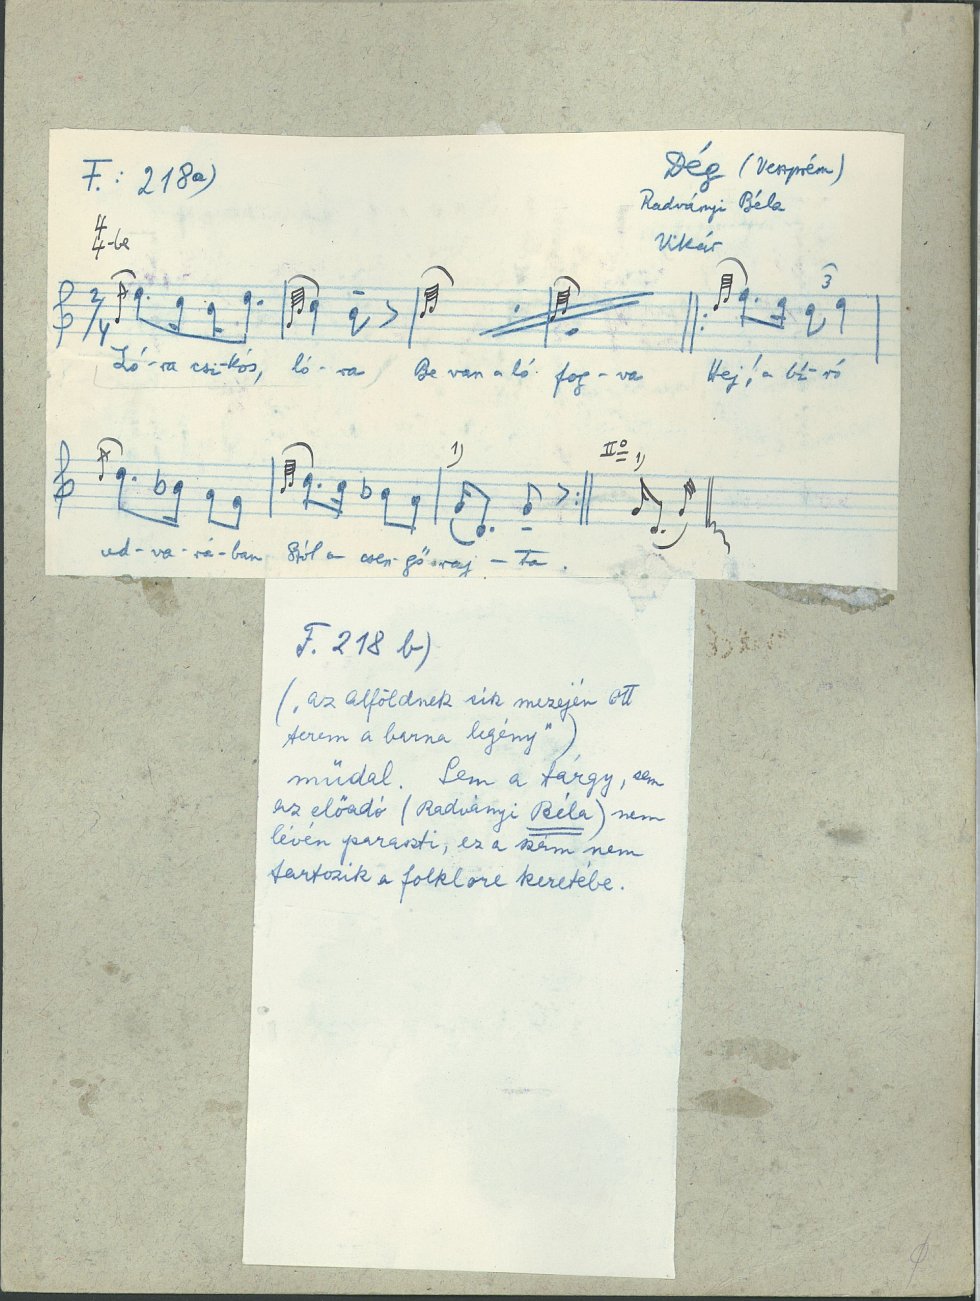 F.: 218a)
Dég (Veszprém)
Radványi Béla
Vikár
4/4-be
2/4
3
Ló-ra csi-kós, ló-ra Be van a ló fog-va Hej! a bí-ró
1) IIº 1)
ud-va-rá-ban Szól a csen-gő raj-ta.
F. 218 b)
("Az Alföldnek sík mezején ott
terem a barna legény")
műdal. Sem a tárgy, sem
az előadó (Radványi Béla) nem
lévén paraszti, ez a szám nem
tartozik a folklore keretébe.